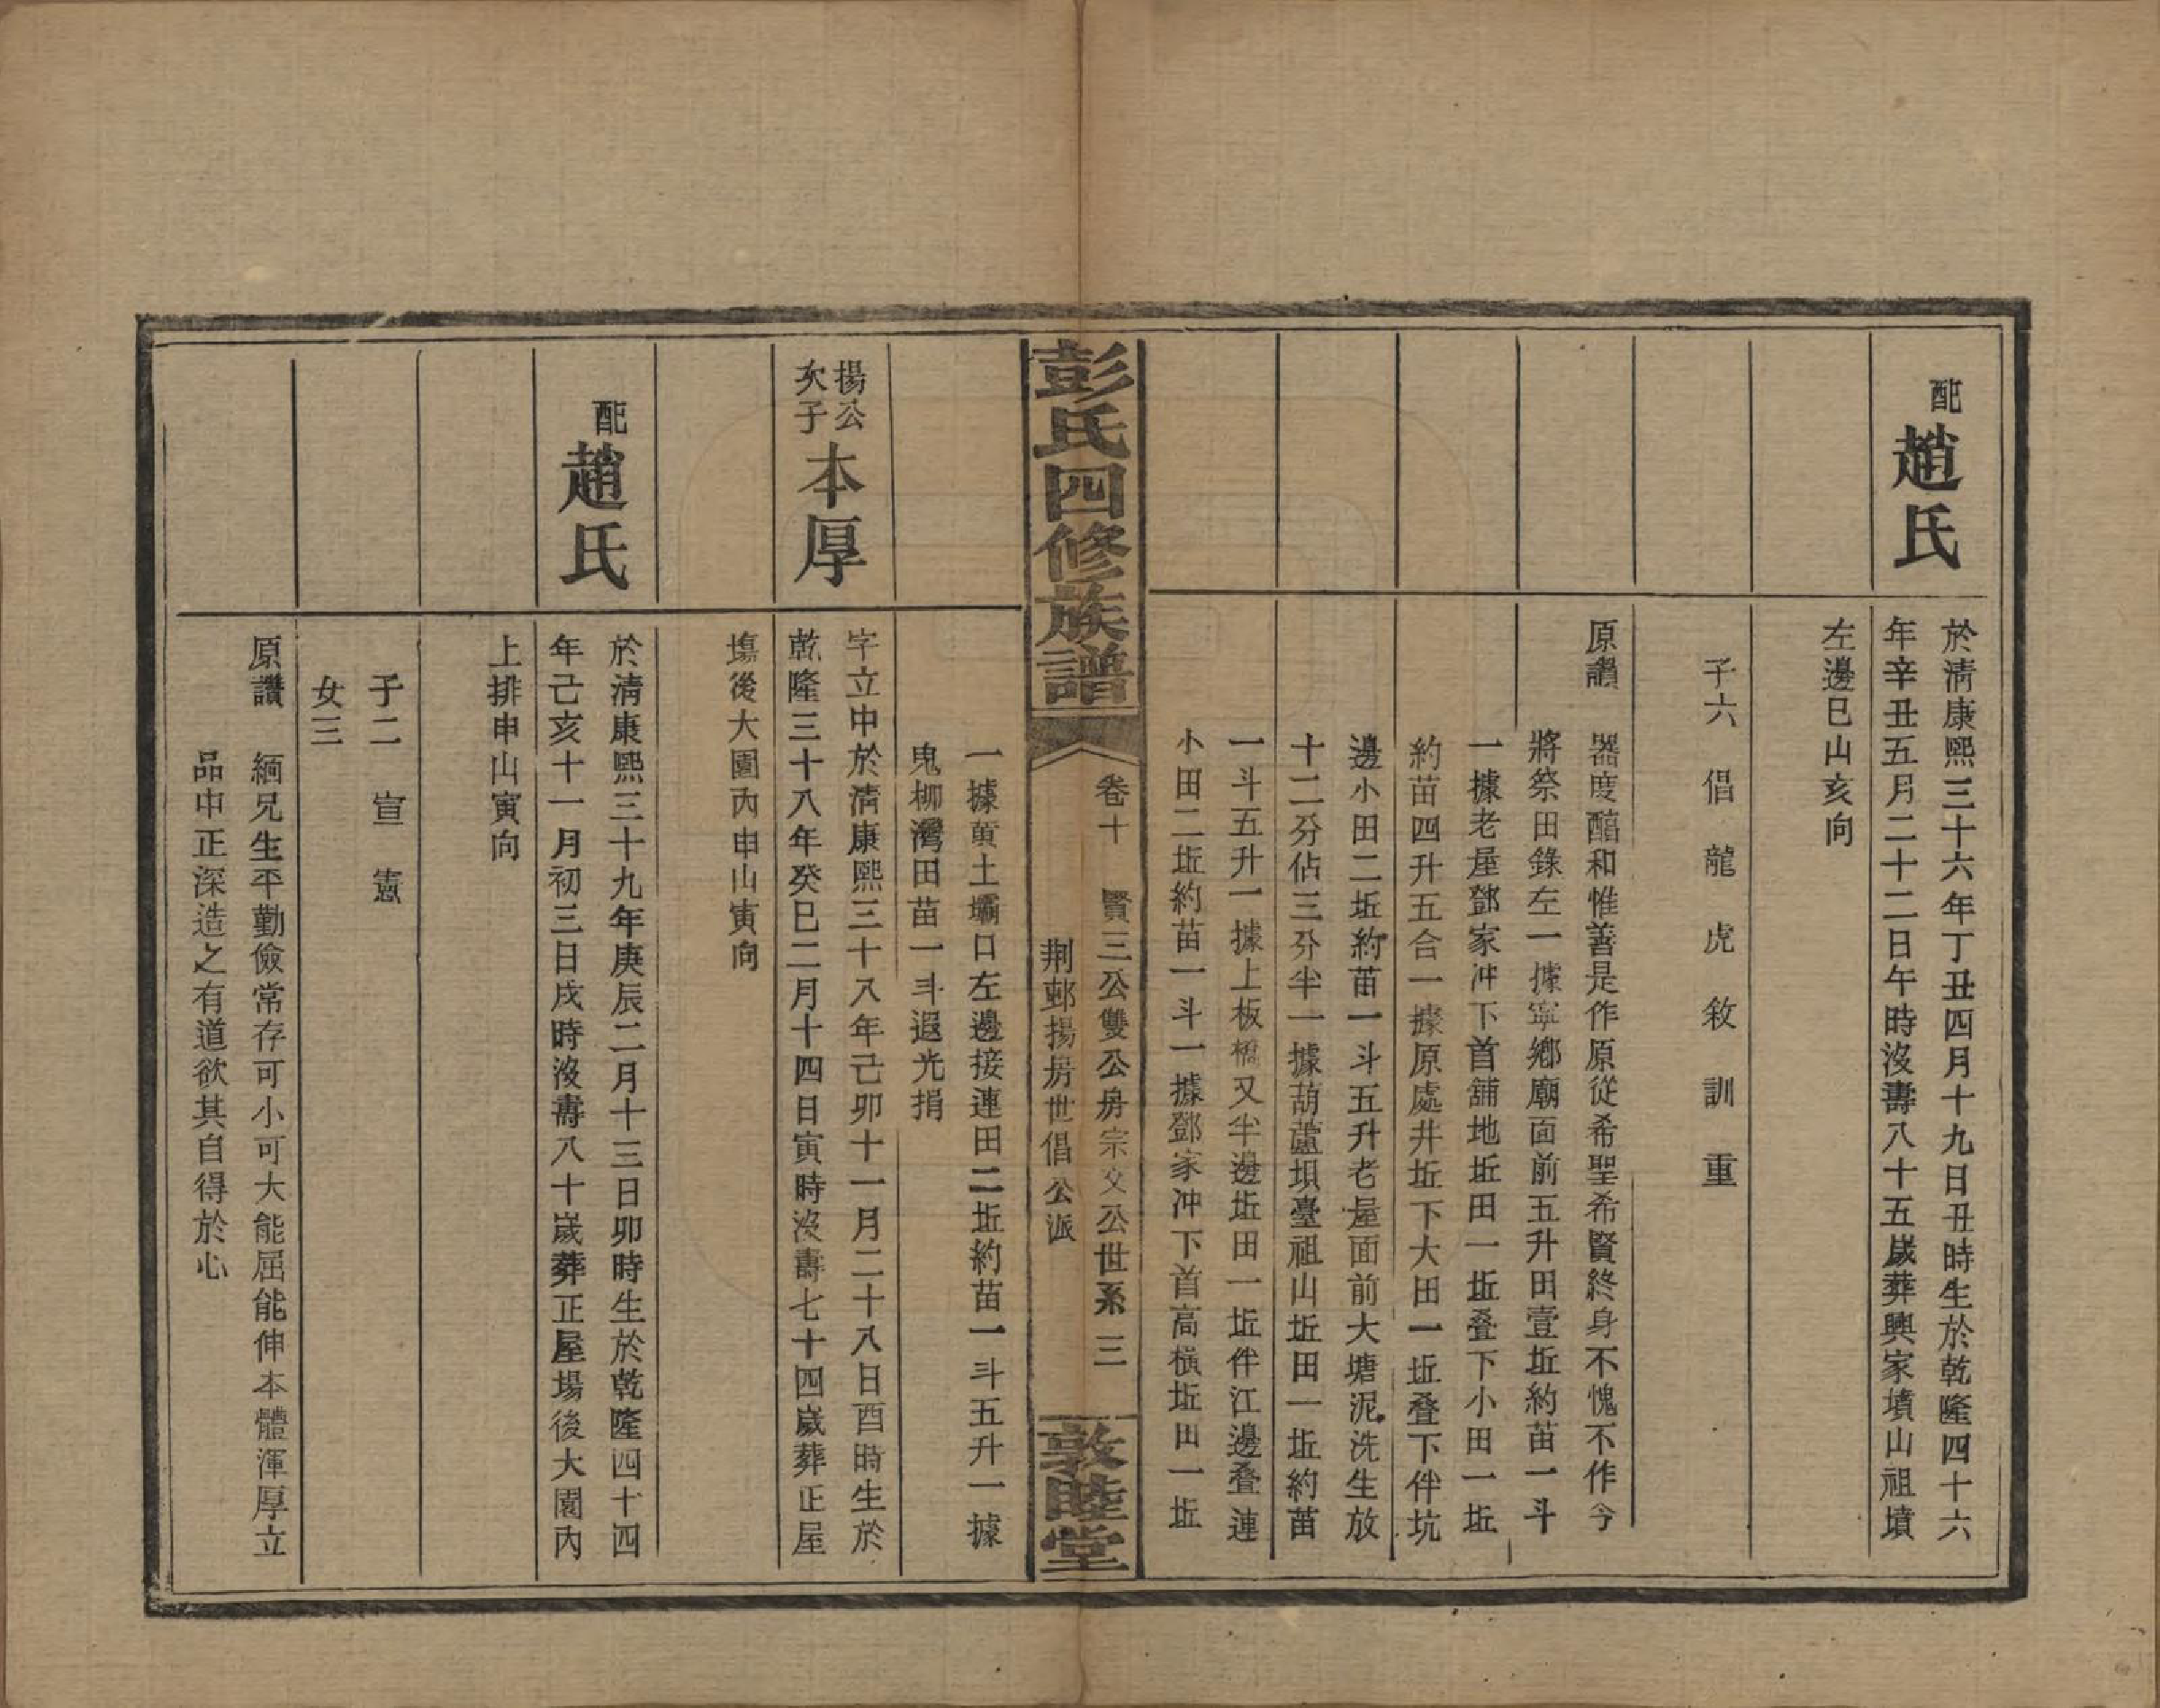 配趙氏
於淸康熙三十六年丁丑四月十九日丑時生於乾隆四十六
年辛丑五月二十二日午時沒壽八十五歲葬興家墳山祖墳
左邊巳山亥向
子六 倡 龍 虎 敘 訓 重
原讚 器度醕和惟善是作原從希聖希賢終身不愧不作今
將祭田錄左一據寧鄉廟面前五升田壹坵約苗一斗
一據老屋鄧家冲下首舖地坵田一坵叠下小田一坵
約苗四升五合一據原處井坵下大田一坵叠下伴坑
邊小田二坵約苗一斗五升老屋面前大塘泥洗生放
十二分佔三分半一據葫蘆垻臺祖山坵田一坵約苗
一斗五升一據上板橋又半邊坵田一坵伴江邊叠連
小田二坵約苗一斗一據鄧家冲下首高橫坵田一坵
彭氏四修族譜
卷十 賢三公雙公房宗文公世系 三
荆郵揚房世倡公派
敦睦堂
一據黄土壩口左邊接連田二坵約苗一斗五升一據
鬼柳灣田苗一斗遐光捐
揚公
次子
本厚
字立中於淸康熙三十八年己卯十一月二十八日酉時生於
乾隆三十八年癸巳二月十四日寅時沒壽七十四歲葬正屋
塲後大園內申山寅向
配趙氏
於淸康熙三十九年庚辰二月十三日卯時生於乾隆四十四
年己亥十一月初三日戌時沒壽八十歲葬正屋場後大園內
上排申山寅向
子二 宣 憲
女三
原讚 緬兄生平勤儉常存可小可大能屈能伸本體渾厚立
品中正深造之有道欲其自得於心